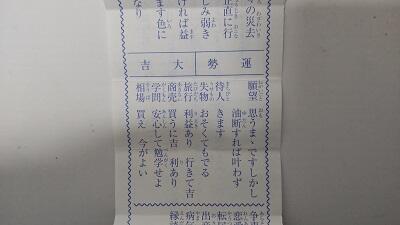 の災去
正直に行
しみ弱き
ければ益
ます色に
なり
運勢大吉
願望 思うまゝですしかし
油断すれば叶わず
待人 きます
失物 おそくもでる
旅行 利益あり 行きて吉
商売 買うに吉 利あり
学問 安心して勉学せよ
相場 買え 今がよい
争事
恋愛
転居
出産
病気
縁談